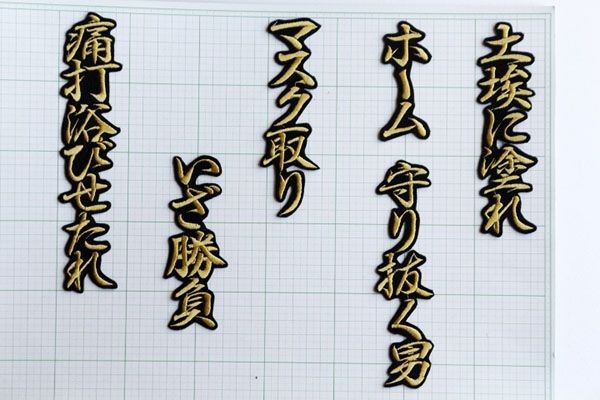 土埃に塗れ
ホーム 守り抜く男
マスク取り
いざ勝負
痛打浴びせたれ